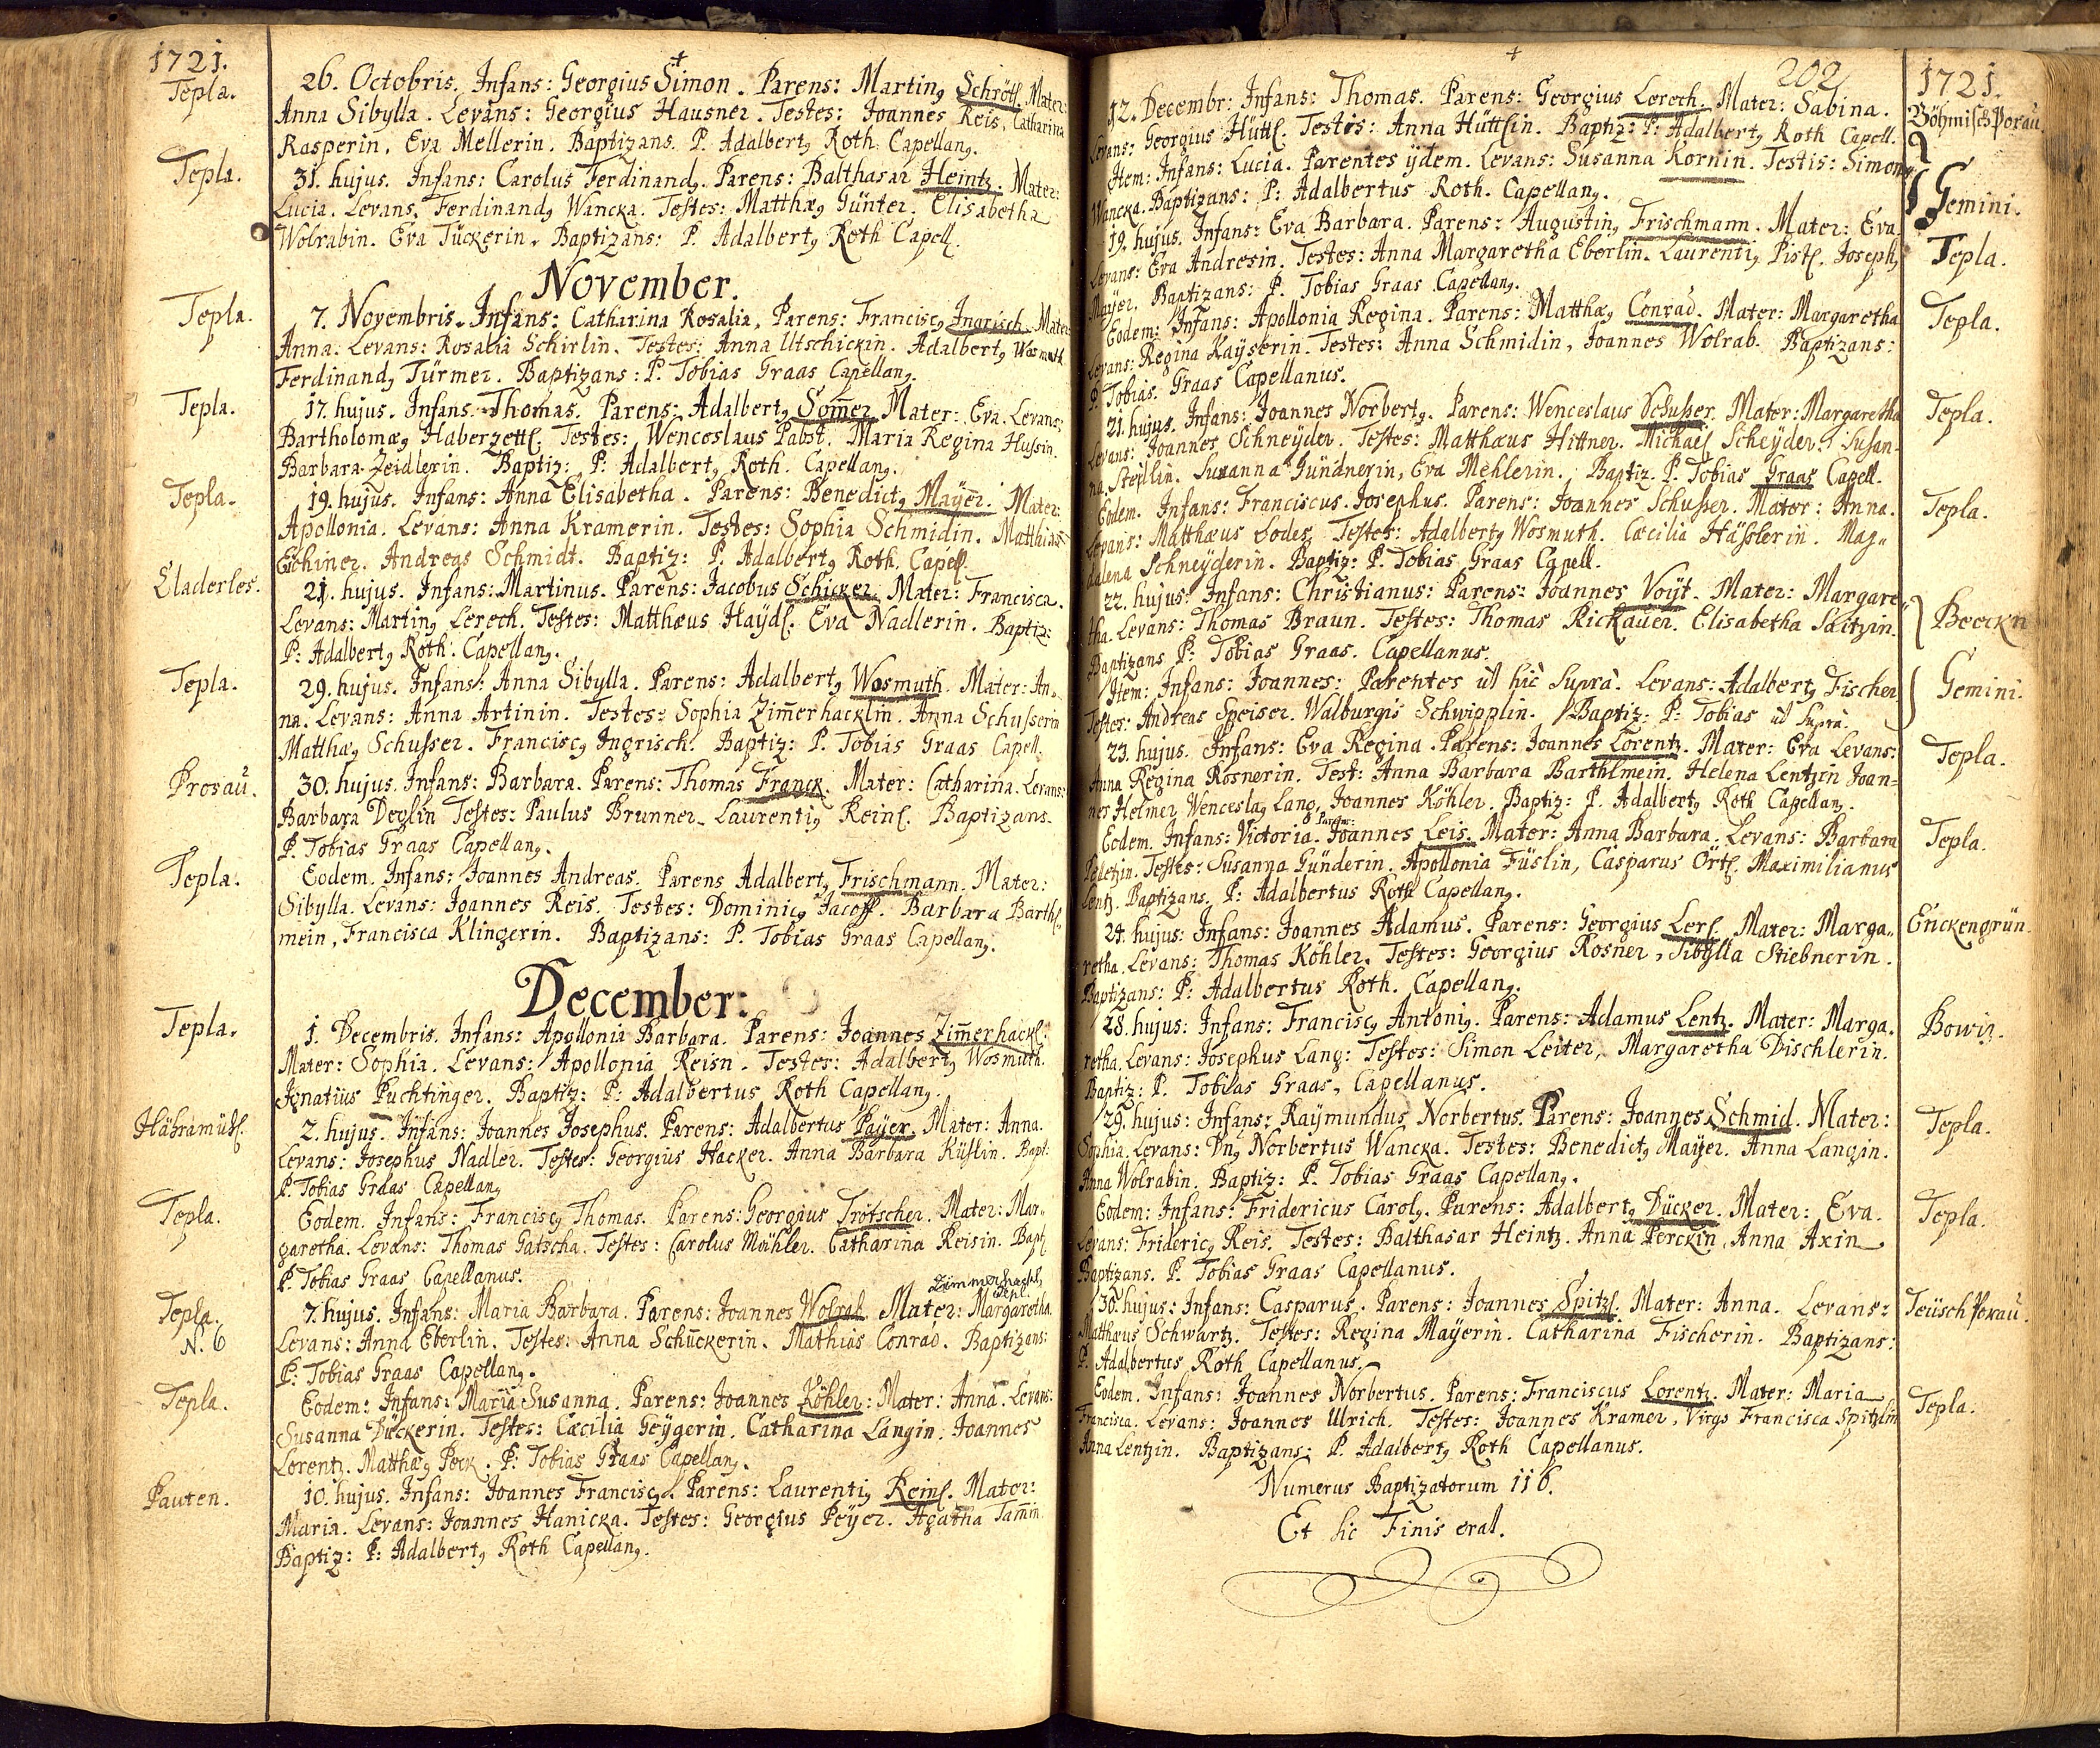 1721.
Tepla.
26. Octobris. Infans: Georgius Simon. Parens: Martinꝰ Schrötl. Mater:
Anna Sibylla. Levans: Georgius Hausner. Testes: Joannes Reis, Catharina
Rasperin, Eva Mellerin. Baptizans. P. Adalbertꝰ Roth Capellanꝰ.
Tepla.
31. hujus. Infans: Carolus Ferdinandꝰ. Parens: Balthasar Heintz. Mater:
Lucia. Levans. Ferdinandꝰ Wancka. Testes: Matthæꝰ Günter. Elisabetha
Wolrabin. Eva Tückerin. Baptizans: P. Adalbertꝰ Roth Capell.
November.
Tepla.
7. Novembris. Infans: Catharina Rosalia, Parens: Franciscꝰ Ingrisch. Mater:
Anna. Levans: Rosalia Schirlin. Testes: Anna Utschickin. Adalbertꝰ Wosmuth
Ferdinandꝰ Türmer. Baptizans: P. Tobias Graas Capellanꝰ.
Tepla.
17. hujus. Infans. Thomas. Parens: Adalbertꝰ Som̄er Mater: Eva. Levans:
Bartholomæꝰ Haberzettl. Testes: Wenceslaus Pabst. Maria Regina Hussin.
Barbara Zeidlerin. Baptiz: P: Adalbertꝰ Roth. Capellanꝰ.
Tepla.
19. hujus. Infans: Anna Elisabetha. Parens: Benedictꝰ Mayer. Mater:
Apollonia. Levans: Anna Kramerin. Testes: Sophia Schmidin. Matthias
Echiner. Andreas Schmidt. Baptiz: P. Adalbertꝰ Roth. Capell.
Eladerles.
21. hujus. Infans: Martinus. Parens: Jacobus Schicker. Mater: Francisca.
Levans: Martinꝰ Lerech. Testes: Matthæus Haydl. Eva Nadlerin. Baptiz:
P: Adalbertꝰ Roth. Capellanꝰ.
Tepla.
29. hujus. Infans: Anna Sibylla. Parens: Adalbertꝰ Wosmuth. Mater: An-
na. Levans: Anna Artinin. Testes: Sophia Zim̄erhacklin. Anna Schusserin
Matthæꝰ Schusser. Franciscꝰ Ingrisch. Baptiz: P. Tobias Graas Capell.
Prosaŭ.
30. hujus. Infans: Barbara. Parens: Thomas Franck. Mater: Catharina. Levans:
Barbara Deglin Testes: Paulus Brunner. Laurentiꝰ Reinl. Baptizans.
P. Tobias Graas Capellanꝰ.
Tepla.
Eodem. Infans: Joannes Andreas. Parens Adalbertꝰ Frischmann. Mater:
Sibylla. Levans: Joannes Reis. Testes: Dominicꝰ Jacoff. Barbara Barthl-
mein, Francisca Klingerin. Baptizans: P. Tobias Graas Capellanꝰ.
December:
Tepla.
1. Decembris. Infans: Apollonia Barbara. Parens: Joannes Zim̄erhackl.
Mater: Sophia. Levans: Apollonia Reisn. Testes: Adalbertꝰ Wosmuth.
Ignatius Puchtinger. Baptiz: P: Adalbertus Roth Capellanꝰ.
Habramühl.
2. hujus. Infans: Joannes Josephus. Parens: Adalbertus Payer. Mater: Anna.
Levans: Josephus Nadler. Testes: Georgius Hacker. Anna Barbara Küslin. Bapt:
P. Tobias Graas Capellanꝰ
Tepla.
Eodem. Infans: Franciscꝰ Thomas. Parens: Georgius Trötscher. Mater: Mar-
garetha. Levans: Thomas Gatscha. Testes: Carolus Mähler. Catharina Reisin. Bapt.
P. Tobias Graas Capellanus.
Tepla.
N. 6
7. hujus. Infans: Maria Barbara. Parens: Joannes Wolrab. Mater: Margaretha.
Levans: Anna Eberlin. Testes: Anna Schuckerin. Mathias Conrad. Baptizans:
P: Tobias Graas Capellanꝰ.
Tepla.
Eodem: Infans: Maria Susanna. Parens: Joannes Köhler: Mater: Anna. Levans:
Susanna Dückerin. Testes: Cæcilia Geÿgerin. Catharina Langin. Joannes
Lorentz. Matthæꝰ Peck. P: Tobias Graas Capellanꝰ.
Pauten.
10. hujus. Infans: Joannes Franciscꝰ. Parens: Laurentiꝰ Reinl. Mater:
Maria. Levans: Joannes Hanicka. Testes: Georgius Peÿer. Agatha Tam̄in
Baptiz: P: Adalbertꝰ Roth Capellanꝰ.
202
1721.
Böhmisch Poraŭ.
12. Decembr: Infans: Thomas. Parens: Georgius Lerech. Mater: Sabina.
Levans: Georgius Hüttl. Testis: Anna Hüttlin. Baptiz: P: Adalbertꝰ Roth Capell.
Gemini.
Item: Infans: Lucia. Parentes ÿdem. Levans: Susanna Kornin. Testis: Simon
Wancka. Baptizans: P: Adalbertus Roth. Capellanꝰ.
Tepla.
19. hujus. Infans: Eva Barbara. Parens: Augustinꝰ Frischmann. Mater: Eva.
Levans: Eva Andresin. Testes: Anna Margaretha Eberlin. Laurentiꝰ Pistl. Josephꝰ
Mayer. Baptizans: P. Tobias Graas Capellanꝰ.
Tepla.
Eodem: Infans: Apollonia Regina. Parens: Matthæꝰ Conrad. Mater: Margaretha
Levans: Regina Kaÿserin. Testes: Anna Schmidin, Joannes Wolrab. Baptizans:
P. Tobias. Graas Capellanus.
Tepla.
21. hujus. Infans: Joannes Norbertꝰ. Parens: Wenceslaus Schusser. Mater: Margaretha
Levans: Joannes Schneÿder. Testes: Matthæus Hittner. Michael Scheÿder. Susan-
na Steplin. Susanna Gündnerin, Eva Mehlerin. Baptiz. P. Tobias Graas Capell.
Tepla.
Eodem. Infans: Franciscus Josephus. Parens: Joannes Schusser. Mater: Anna.
Levans: Matthæus Lodes. Testes: Adalbertꝰ Wosmuth. Cæcilia Hässlerin. Mag-
dalena Schneÿderin. Baptiz: P. Tobias Graas Capell.
Beerkn
22. hujus: Infans: Christianus: Parens: Joannes Voÿt. Mater: Margare-
tha. Levans: Thomas Braun. Testes: Thomas Rickauer. Elisabetha Saltzin.
Baptizans P: Tobias Graas. Capellanus.
Gemini.
Item: Infans: Joannes: Parentes ut hic supra. Levans: Adalbertꝰ Fischer
Testes: Andreas Speiser. Walburgis Schwipplin. Baptiz: P: Tobias ut supra.
Tepla.
23. hujus. Infans: Eva Regina. Parens: Joannes Lorentz. Mater: Eva Levans:
Anna Regina Rosnerin. Test: Anna Barbara Barthlmein. Helena Lentzin Joan-
nes Helmer, Wenceslaꝰ Lang, Joannes Köhler. Baptiz: P. Adalbertꝰ Roth Capellanꝰ.
Tepla.
Eodem. Infans: Victoria. Parens: Joannes Leis. Mater: Anna Barbara. Levans: Barbara
Peletzin. Testes: Susanna Günderin. Apollonia Füslin, Casparus Örtl. Maximilianus
Lentz. Baptizans. P: Adalbertus Roth Capellanꝰ.
Enckengrün.
24. hujus: Infans: Joannes Adamus. Parens: Georgius Lerl. Mater: Marga-
retha. Levans: Thomas Köhler. Testes: Georgius Rosner, Sibylla Stiebnerin.
Baptizans: P: Adalbertus Roth. Capellanꝰ.
Bowiz.
28. hujus: Infans: Franciscꝰ Antoniꝰ. Parens: Adamus Lentz. Mater: Marga-
retha. Levans: Josephus Lang: Testes: Simon Leiter, Margaretha Dischlerin.
Baptiz: P. Tobias Graas, Capellanus.
Tepla.
29. hujus: Infans: Raÿmundus Norbertus. Parens: Joannes Schmid. Mater:
Sophia. Levans: Dnꝰ Norbertus Wancka. Testes: Benedictꝰ Maÿer. Anna Langin.
Anna Wolrabin. Baptiz: P. Tobias Graas Capellanꝰ.
Tepla.
Eodem: Infans: Fridericus Carolꝰ. Parens: Adalbertꝰ Dücker. Mater: Eva.
Levans: Fridericꝰ Reis. Testes: Balthasar Heintz. Anna Perckin, Anna Axin
Baptizans. P. Tobias Graas Capellanus.
Teüsch Poraŭ.
30. hujus: Infans: Casparus. Parens: Joannes Spitzl. Mater: Anna. Levans:
Matthæus Schwartz. Testes: Regina Maÿerin. Catharina Fischerin. Baptizans:
P. Adalbertus Roth Capellanus.
Tepla.
Eodem. Infans: Joannes Norbertus. Parens: Franciscus Lorentz. Mater: Maria
Francisca. Levans: Joannes Ulrich. Testes: Joannes Kramer, Virgo Francisca Spitzlin
Anna Lentzin. Baptizans: P. Adalbertꝰ Roth Capellanus.
Numerus Baptizatorum 116.
Et sic Finis erat.